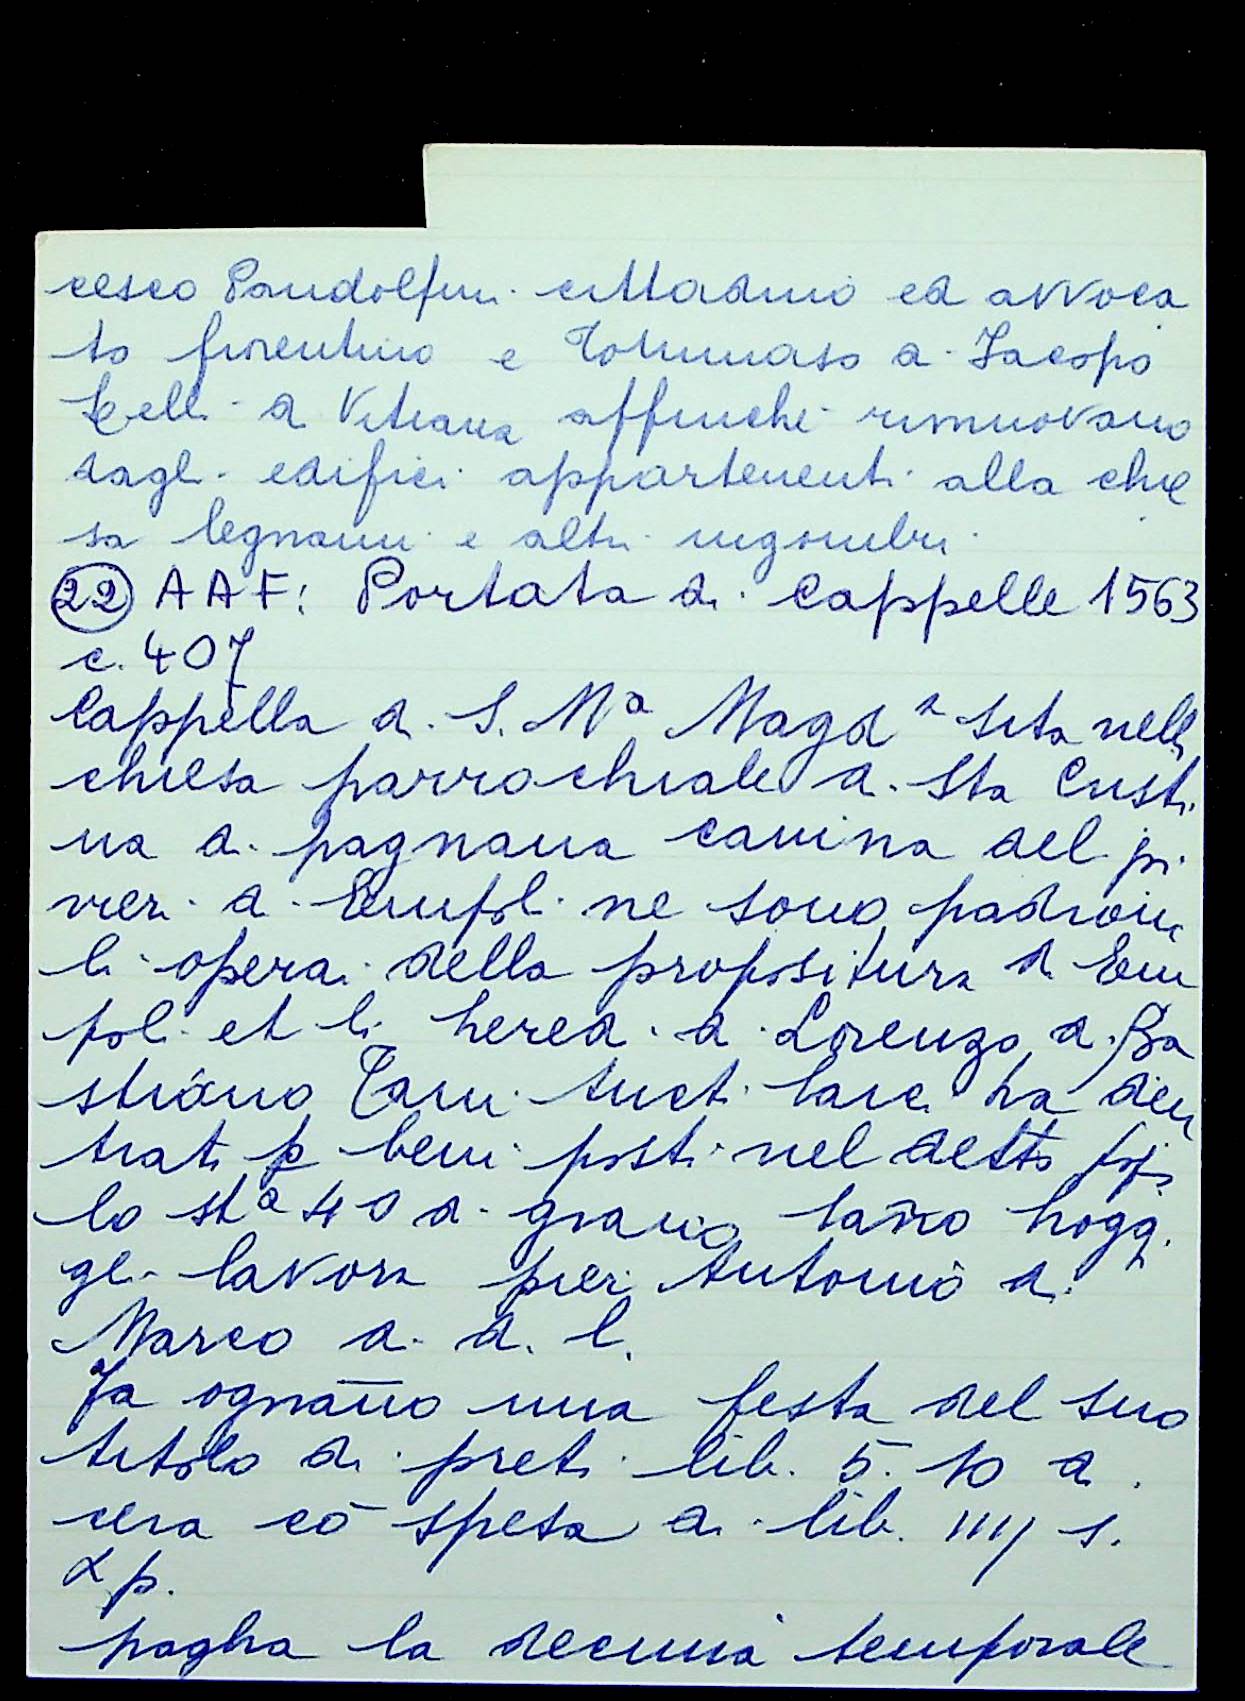 cesco Pandolfini cittadino ed avvoca
to fiorentino e Tommaso di Jacopo
Lelli di Vitiana affinchè rimuovano
dagli edifici appartenenti alla chie
sa legnami e altri ingombri.
(22) AAF: Portata di Cappelle 1563
c. 407
Cappella di S. Mª Magdª sita nella
chiesa parrochiale di Sta Cristi
na di pagnana canina del pi
vieri di Empoli ne sono padroni
li operai della propositura di Em
poli et li heredi di Lorenzo di Ba
stiano Tani tucti laici ha di en
trati p beni posti nel detto popo
lo stª 40 di grano lanno hoggi
gli lavora pier Antonio di
Marco di di l.
Fa ognano una festa del suo
titolo di preti lib. 5. 10 di
cera cō spesa di lib. iiij s.
x p.
pagha la decima temporale